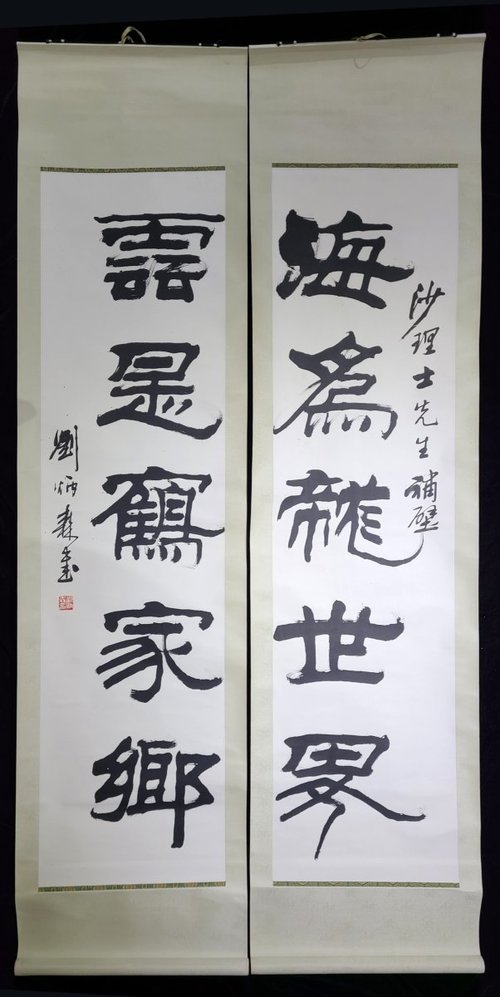 沙理士先生補壁
海為龍世界
雲是鶴家鄉
劉炳森